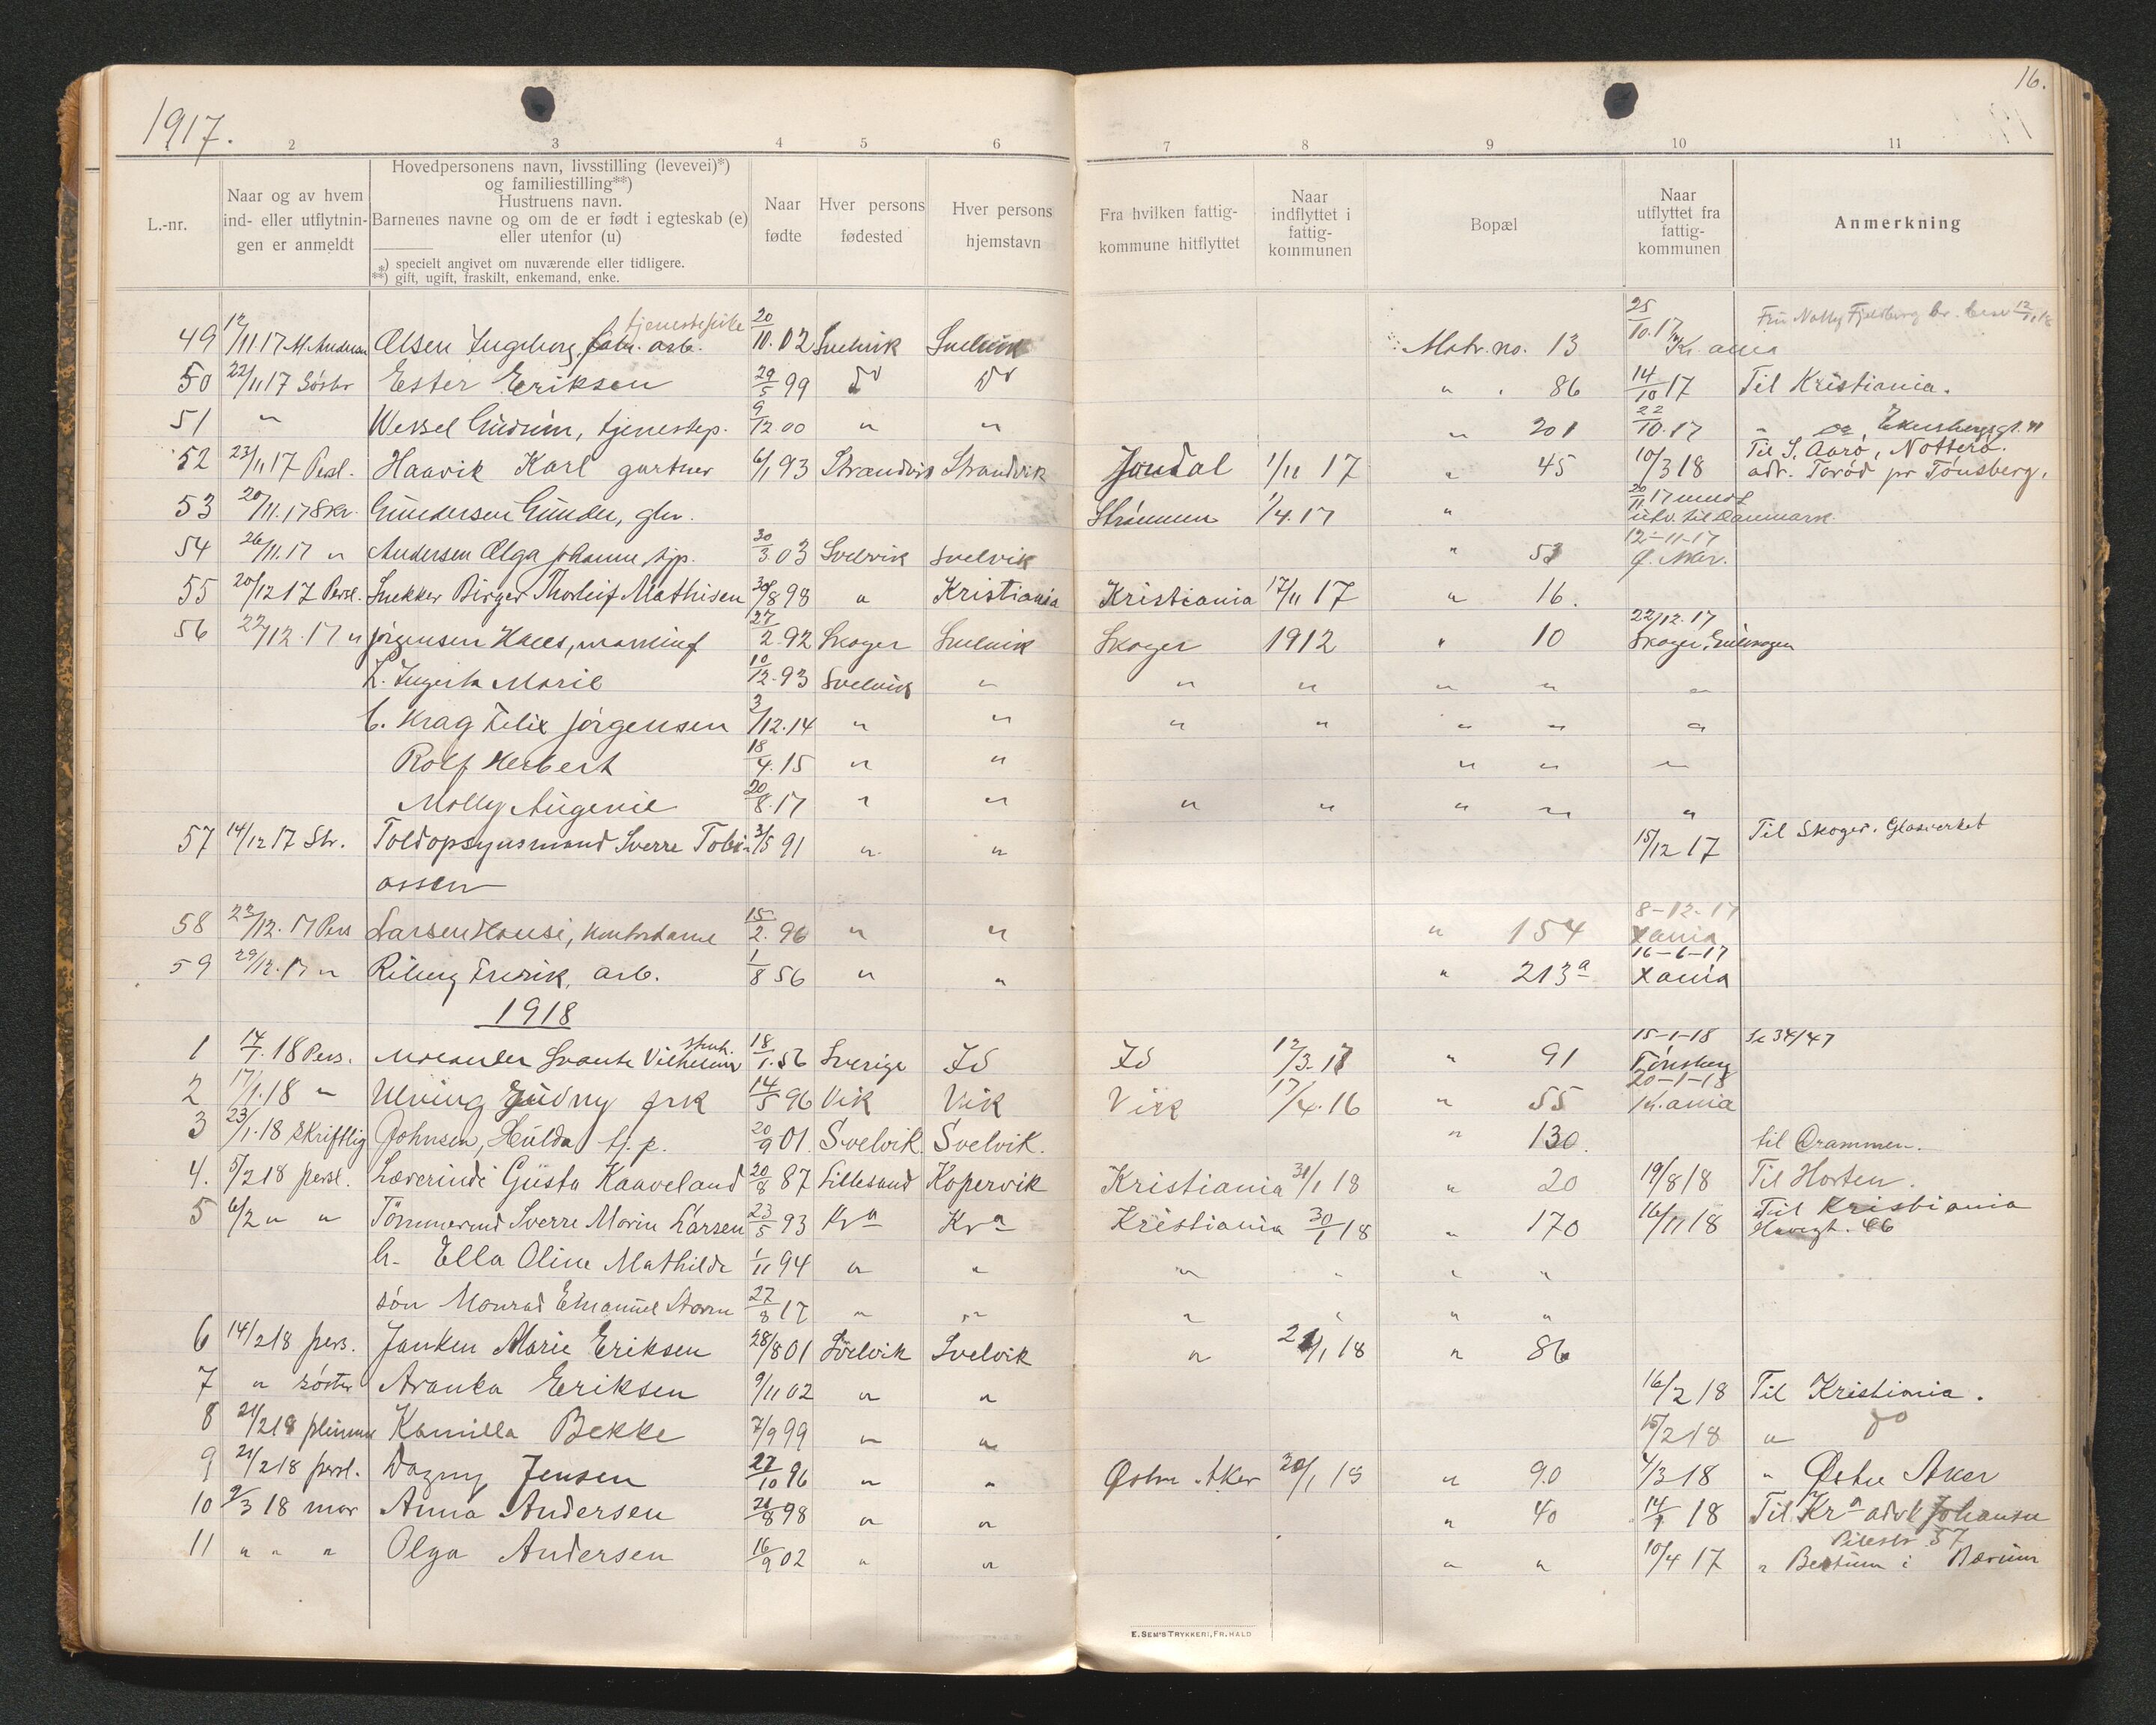 1917.
16.
2 3 4 5 6 7 8 9 10 11
L.-nr.
Naar og av hvem ind- eller utflytningen er anmeldt
Hovedpersonens navn, livsstilling (levevei)*)
og familiestilling**)
Hustruens navn.
Barnenes navne og om de er født i egteskab (e)
eller utenfor (u)
*) specielt angivet om nuværende eller tidligere.
**) gift, ugift, fraskilt, enkemand, enke.
Naar fødte
Hver persons fødested
Hver persons hjemstavn
Fra hvilken fattig-kommune hitflyttet
Naar indflyttet i fattig-kommunen
Bopæl
Naar utflyttet fra fattig-kommunen
Anmerkning
49 12/11 17 Olsen Ingeborg, arb. tjenestepike 20/10.02 Svelvik Svelvik Matr. no. 13 25/10.17 Kr.ania
50 22/11 17 Ester Eriksen 29/5 99 Do Do " 86 14/10 17 Til Kristiania.
51 " Wessel Gudrun, tjenestep. 9/12 00 " " " 201 22/10.17 "
52 23/11 17 Persl. Haavik Karl gartner 6/1 93 Strandvik Strandvik Jondal 1/11 17 " 45 10/3 18 Til S. Aarø, Nøtterø.
adr. Torød pr Tønsberg.
53 20/11.17 Skr. Gundersen Gunder, Strømmen 1/4.17 " 20/11 17
utv. til Danmark.
54 26/11.17 " Andersen Olga Johanne tjp. 30/3 03 Svelvik Svelvik " 53 12-11-17
Ø. Aker.
55 20/12 17 Persl. Snekker Birger Thorleif Mathisen 30/8 98 " Kristiania Kristiania 17/11 17 " 16.
56 22/12.17 " Jørgensen 27/2.92 Skoger Svelvik Skoger 1912 " 10 22/12.17
Skoger,
Marie 10/12.93 Svelvik " " " " " "
b. Krag Felix Jørgensen 3/12.14 " " " " " " "
Rolf Herbert 18/4.15 " " " " "
Molly Augenie 20/8.17 " " " " " " "
57 14/12 17 Str. Toldopsynsmand Sverre Tobi- 3/5 91 " " 15/12 17 Til Skoger. Glasverket
assen
58 22/12.17 Pers Larsen 15/2.96 " " " 154 8-12-17
Xania
59 29/12.17 " Riberg Fredrik, arb. 1/8 56 " " " 213a 16-6-17
Xania
1918
1 14/1.18 Pers. Svante Vilhelm 18/1.56 Sverige Id Id 12/3.17 " 91 15-1-18 Se 34/47
Tønsberg
2 17/1.18 " Gudny frk 14/5 96 Vik Vik Vik 17/4.16 " 55 20-1-18
Kr.ania
3 23/1.18 Skriftlig Johnsen, Hulda tj.p. 20/9 01. Svelvik. Svelvik. " 130. til Drammen.
4. 5/2 18 persl. Læverinde Gusta Kaaveland 20/8 87 Lillesand Kopervik Kristiania 31/1 18 " 20 19/8 18 Til Horten.
5 6/2 " " Tømmermd Sverre Morin Larsen 23/5 93 Kra Kra Kristiania 30/1 18 " 170 16/11 18 Til Kristiania
46
h- Ella Oline Mathilde 1/11 94 " " " " " "
søn Monrad Emanuel 27/8 17 " " " " " "
6 14/2 18 pers. Janken Marie Eriksen 28/8 01 Svelvik Svelvik " 21/1 18 " 86
7 " søster Aranka Eriksen 9/11 02 " " 16/2 18 Til Kristiania.
8 21/2 18 Kamilla Bekke 7/9 99 " " 15/2 18 " Do
9 21/2 18 persl. Dagny Jensen 27/10 96 " " Østre Aker 20/1 18 " 90 4/3 18 " Østre Aker
10 9/3 18 mor Anna Andersen 21/8 98 " " " 40 14/1 18 Til Kra Johansen
Pilestr 57
11 " " " Olga Andersen 16/9 02 " " " " 10/4 17 " Bestum i Bærum
E. SEM'S TRYKKERI, FR. HALD